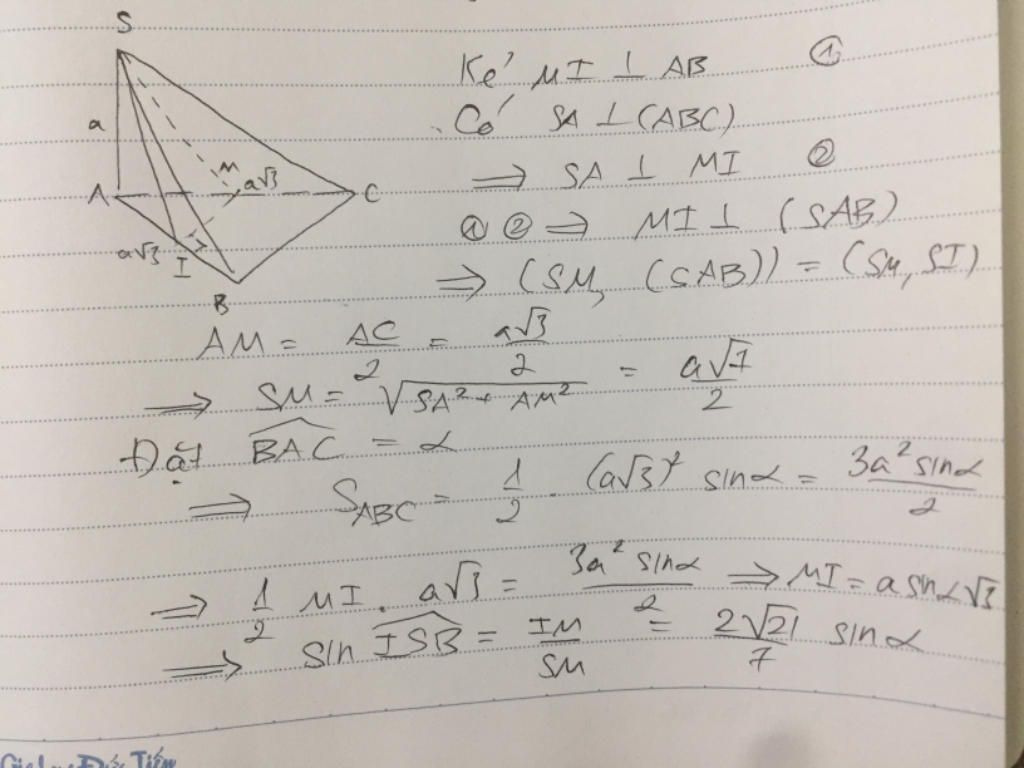 S
a
A
M
a√3
C
a√3
I
B
Kẻ MI ⊥ AB ①
Có SA ⊥ (ABC)
⇒ SA ⊥ MI ②
① ② ⇒ MI ⊥ (SAB)
⇒ (SM, (SAB)) = (SM, SI)
AM = AC/2 = a√3/2
⇒ SM = √(SA² + AM²) = a√7/2
Đặt \widehat{BAC} = α
⇒ S_ABC = 1/2 . (a√3)² sinα = 3a² sinα/2
⇒ 1/2 MI . a√3 = 3a² sinα/2 ⇒ MI = a sinα√3
⇒ sin \widehat{ISB} = IM/SM = 2√21/7 sinα
Đức Tiến